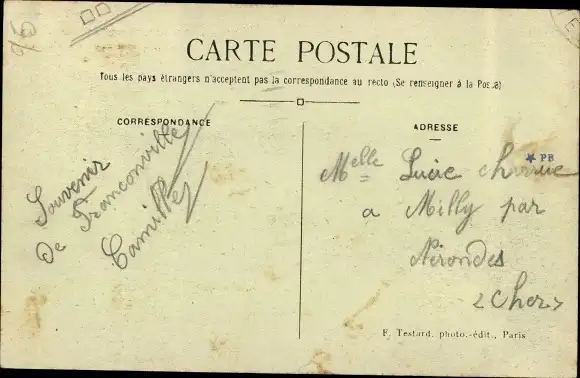 95
CARTE POSTALE
Tous les pays étrangers n'acceptent pas la correspondance au recto (Se renseigner à la Poste)
CORRESPONDANCE
Souvenir
De Franconville
Camille
ADRESSE
PB
Melle Lucie Charrue
a Milly par
Nérondes
<Cher>
F. Testard, photo.-édit., Paris